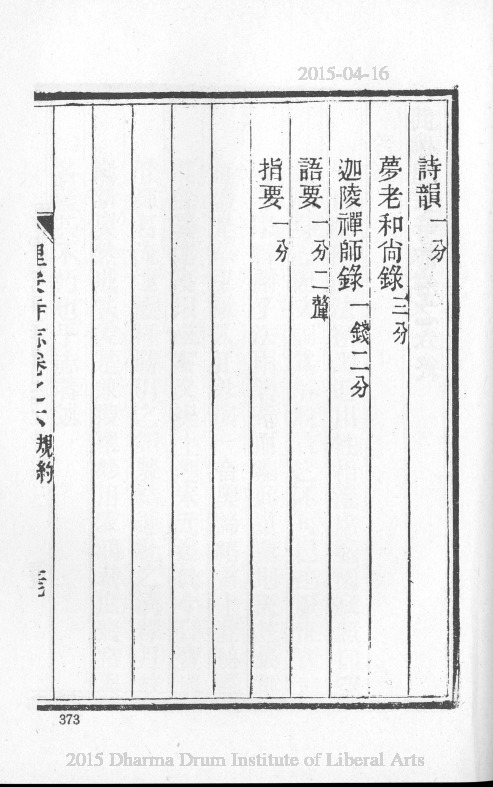 2015-04-16
詩韻一分
夢老和尙錄三分
迦陵禪師錄一錢二分
語要一分二釐
指要一分
理安寺志卷之六 規約
373
2015 Dharma Drum Institute of Liberal Arts